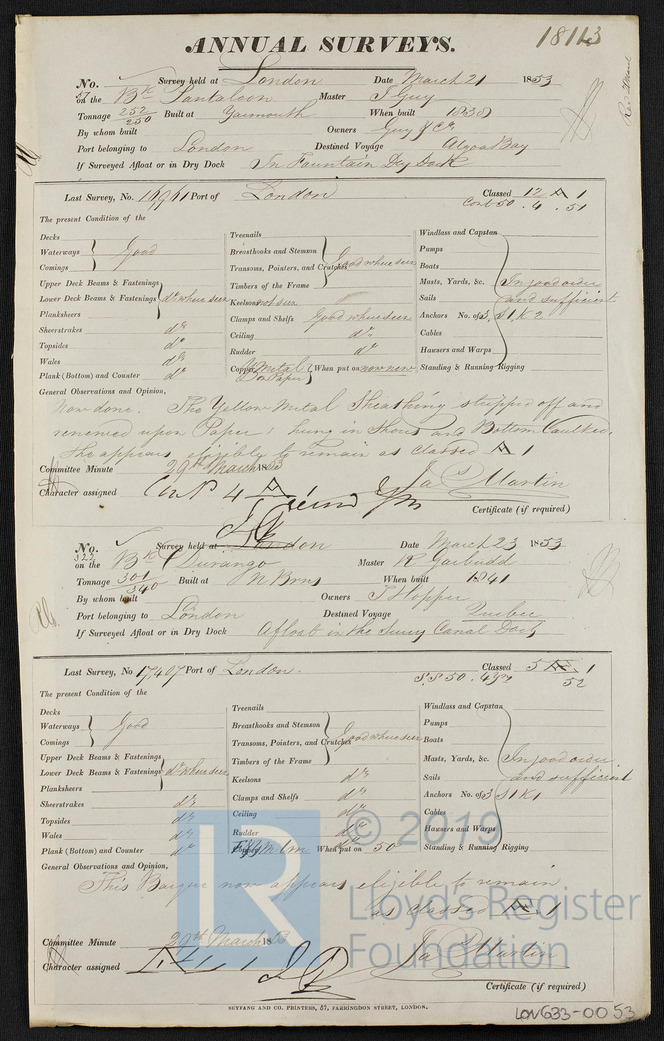 ANNUAL SURVEYS.
18113
Rec. Steml
No. Survey held at London Date March 21 1853
57 on the Bk Pantaloon Master J Guy
Tonnage 252 250 Built at Yarmouth When built 1838
By whom built Owners Guy & Co.
Port belonging to London Destined Voyage Algoa Bay
If Surveyed Afloat or in Dry Dock In Fountain Dry Dock
Last Survey, No. 16961 Port of London Classed 12 A 1
Cont 50 . 4 . 51
The present Condition of the
Decks
Waterways } Good
Comings
Upper Deck Beams & Fastenings
Lower Deck Beams & Fastenings } do where seen
Planksheers
Sheerstrakes do
Topsides do
Wales do
Plank (Bottom) and Counter do
Treenails
Breasthooks and Stemson
Transoms, Pointers, and Crutches } Good where seen
Timbers of the Frame
Keelsons not seen
Clamps and Shelfs Good where seen
Ceiling do
Rudder do
Copper Y Metal on Paper } When put on now new
Windlass and Capstan
Pumps
Boats
Masts, Yards, &c. In good order
Sails and sufficient
Anchors No. of 3, S1, K2
Cables
Hawsers and Warps
Standing & Running Rigging
General Observations and Opinion,
Now done. The Yellow Metal Sheathing stripped off and
renewed upon Paper; hung in Shores and Bottom Caulked.
She appears eligible to remain as Classed A 1
Committee Minute 29th March 1853
Character assigned Cont 4 A 1
Ja S Martin
Certificate (if required)
No. Survey held at London Date March 23 1853
322 on the Bk Durango Master R Garbudd
Tonnage 301 340 Built at N Brns When built 1841
By whom built Owners T Hopper
Port belonging to London Destined Voyage Quebec
If Surveyed Afloat or in Dry Dock Afloat in the Surrey Canal Dock
Last Survey, No 17,407 Port of London. Classed 5 Æ 1
S.S 50 . 4 yrs 52
The present Condition of the
Decks
Waterways } Good
Comings
Upper Deck Beams & Fastenings
Lower Deck Beams & Fastenings } do where seen
Planksheers
Sheerstrakes do
Topsides do
Wales do
Plank (Bottom) and Counter do
Treenails
Breasthooks and Stemson
Transoms, Pointers, and Crutches } Good where seen
Timbers of the Frame
Keelsons do
Clamps and Shelfs do
Ceiling do
Rudder do
When put on 50
Windlass and Capstan
Pumps
Boats
Masts, Yards, &c. In good order
Sails and sufficient
Anchors No. of 3 S1 K1
Cables
Hawsers and Warps
Standing & Running Rigging
General Observations and Opinion,
This Barque now appears eligible to remain
as classed Æ 1
Committee Minute 29th March 1853
Character assigned
Ja S Martin
Certificate (if required)
SEYFANG AND CO. PRINTERS, 57, FARRINGDON STREET, LONDON.
LR
© 2019
Lloyd's Register
Foundation
LON633-0053